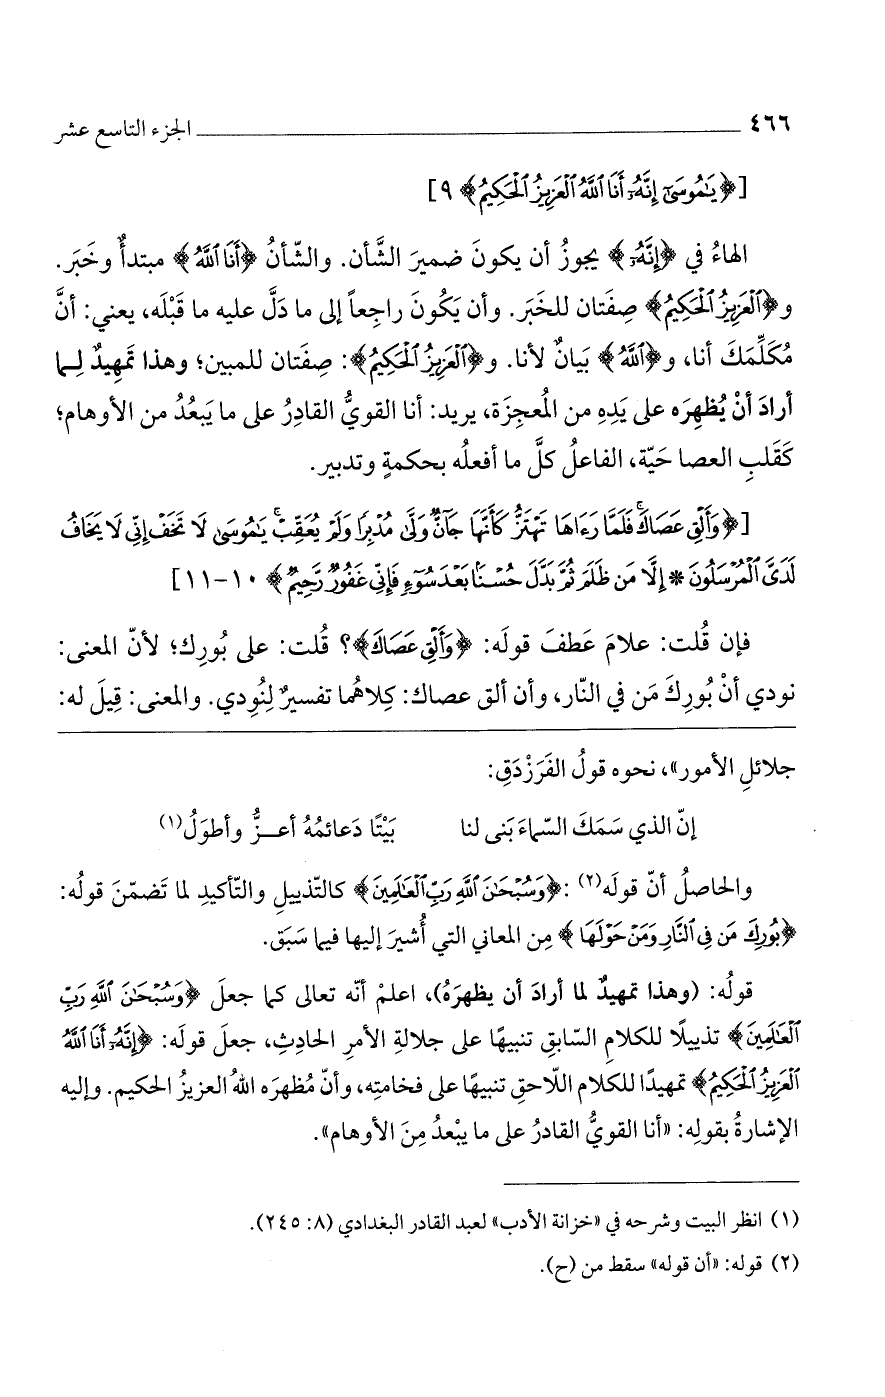 ٤٦٦ ــــــــــــــــــــــــــــــــــــــــ الجزء التاسع عشر
[﴿يَٰمُوسَىٰٓ إِنَّهُۥٓ أَنَا ٱللَّهُ ٱلْعَزِيزُ ٱلْحَكِيمُ﴾ ٩]
الهاءُ في ﴿إِنَّهُۥٓ﴾ يجوزُ أن يكونَ ضميرَ الشَّأن. والشّأنُ ﴿أَنَا ٱللَّهُ﴾ مبتدأٌ وخَبَر.
و﴿ٱلْعَزِيزُ ٱلْحَكِيمُ﴾ صِفَتان للخَبَر. وأن يَكُونَ راجِعاً إلى ما دَلَّ عليه ما قَبْلَه، يعني: أنَّ
مُكَلِّمَكَ أنا، و﴿ٱللَّهُ﴾ بَيانٌ لأنا. و﴿ٱلْعَزِيزُ ٱلْحَكِيمُ﴾: صِفَتان للمبين؛ وهذا تَمْهِيدٌ لِـما
أرادَ أنْ يُظهِرَه على يَدِهِ من المُعجِزَة، يريد: أنا القويُّ القادِرُ على ما يَبعُدُ من الأوهام؛
كَقَلبِ العصا حَيّة، الفاعلُ كلَّ ما أفعلُه بحكمةٍ وتدبير.
[﴿وَأَلْقِ عَصَاكَ ۚ فَلَمَّا رَءَاهَا تَهْتَزُّ كَأَنَّهَا جَآنٌّ وَلَّىٰ مُدْبِرًا وَلَمْ يُعَقِّبْ ۚ يَٰمُوسَىٰ لَا تَخَفْ إِنِّى لَا يَخَافُ
لَدَىَّ ٱلْمُرْسَلُونَ * إِلَّا مَن ظَلَمَ ثُمَّ بَدَّلَ حُسْنًۢا بَعْدَ سُوٓءٍ فَإِنِّى غَفُورٌ رَّحِيمٌ﴾ ١٠-١١]
فإن قُلت: علامَ عَطفَ قولَه: ﴿وَأَلْقِ عَصَاكَ﴾؟ قُلت: على بُورِك؛ لأنّ المعنى:
نودي أنْ بُورِكَ مَن في النّار، وأن ألق عصاك: كِلاهُما تفسيرٌ لِنُودي. والمعنى: قِيلَ له:
جلائلِ الأمور»، نحوه قولُ الفَرَزْدَقِ:
إنّ الذي سَمَكَ السّماءَ بَنى لنا بَيْتًا دَعائمُهُ أعـزُّ وأطوَلُ(١)
والحاصلُ أنّ قولَه(٢): ﴿وَسُبْحَٰنَ ٱللَّهِ رَبِّ ٱلْعَٰلَمِينَ﴾ كالتّذييلِ والتّأكيدِ لما تَضمّنَ قولُه:
﴿بُورِكَ مَن فِى ٱلنَّارِ وَمَنْ حَوْلَهَا﴾ مِن المعاني التي أُشيرَ إليها فيما سَبَق.
قولُه: (وهذا تمهيدٌ لما أرادَ أن يظهرَهُ)، اعلمْ أنّه تعالى كما جعلَ ﴿وَسُبْحَٰنَ ٱللَّهِ رَبِّ
ٱلْعَٰلَمِينَ﴾ تذييلًا للكلامِ السّابقِ تنبيهًا على جلالةِ الأمرِ الحادِثِ، جعلَ قولَه: ﴿إِنَّهُۥٓ أَنَا ٱللَّهُ
ٱلْعَزِيزُ ٱلْحَكِيمُ﴾ تمهيدًا للكلام اللّاحقِ تنبيهًا على فخامتِه، وأنّ مُظهرَه اللهُ العزيزُ الحكيم. وإليه
الإشارةُ بقولِه: «أنا القويُّ القادرُ على ما يبْعدُ مِنَ الأوهام».
(١) انظر البيت وشرحه في «خزانة الأدب» لعبد القادر البغدادي (٨: ٢٤٥).
(٢) قوله: «أن قوله» سقط من (ح).